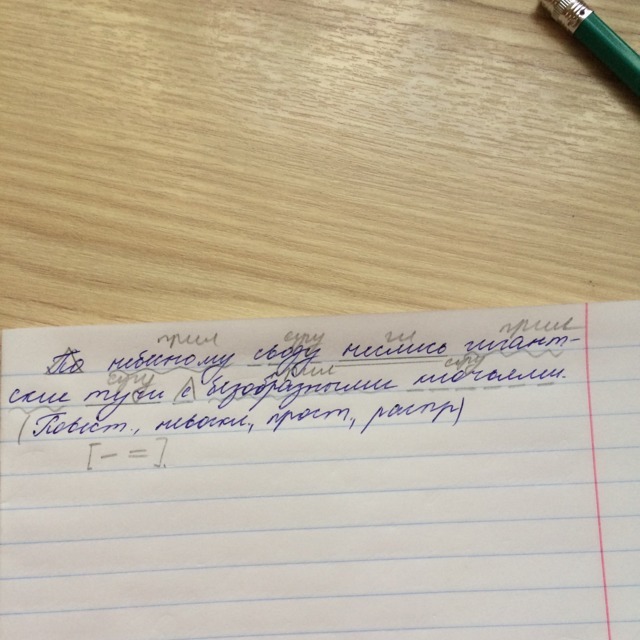 прил сущ гл прил
По небесному своду неслись гигант-
сущ прил сущ
ские тучи с безобразными клочьями.
(Повест., невоскл., прост., распр)
[– =].